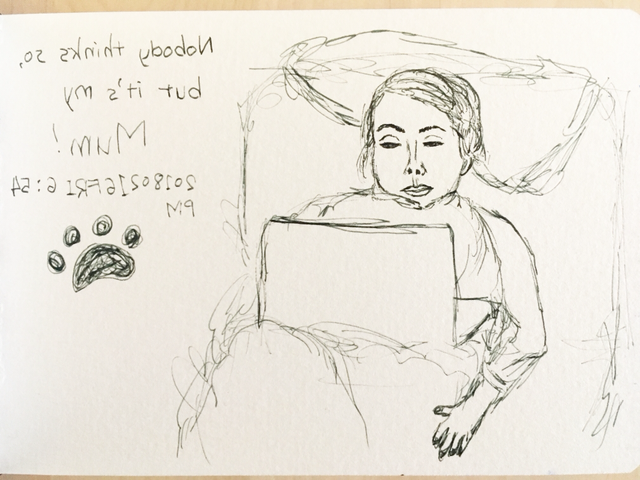 Nobody thinks so,
but it's my
Mum!
20180216FRI 6:54
PM